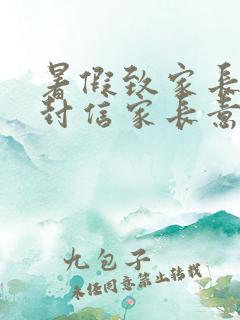 暑假致家长
封信家长意
九包子
未经同意禁止转载